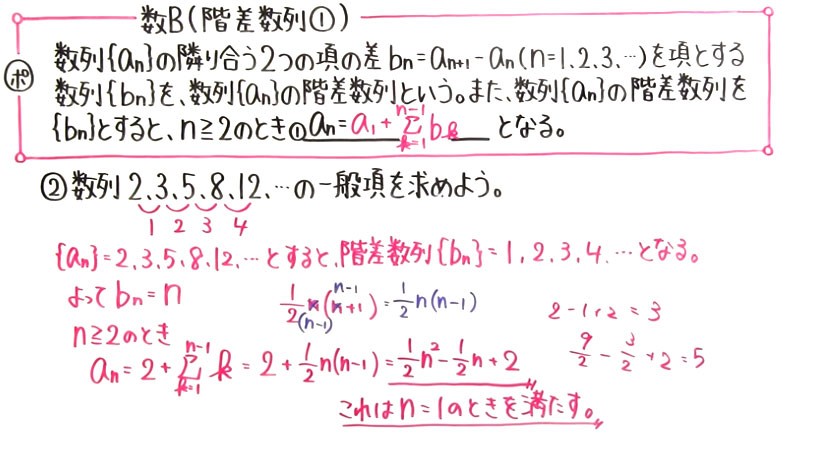 数B(階差数列①)
ポ
数列{an}の隣り合う2つの項の差bn=an+1-an(n=1.2.3.…)を項とする
数列{bn}を、数列{an}の階差数列という。また、数列{an}の階差数列を
{bn}とすると、n≧2のとき①an=a1+Σ[k=1→n-1]bk となる。
②数列2.3.5.8.12.…の一般項を求めよう。
1 2 3 4
{an}=2.3.5.8.12.…とすると、階差数列{bn}=1.2.3.4.…となる。
よってbn=n
1/2n(n+1)=1/2n(n-1)
n-1
(n-1)
2-1+2=3
n≧2のとき
9/2-3/2+2=5
an=2+Σ[k=1→n-1]k=2+1/2n(n-1)=1/2n²-1/2n+2
これはn=1のときを満たす。